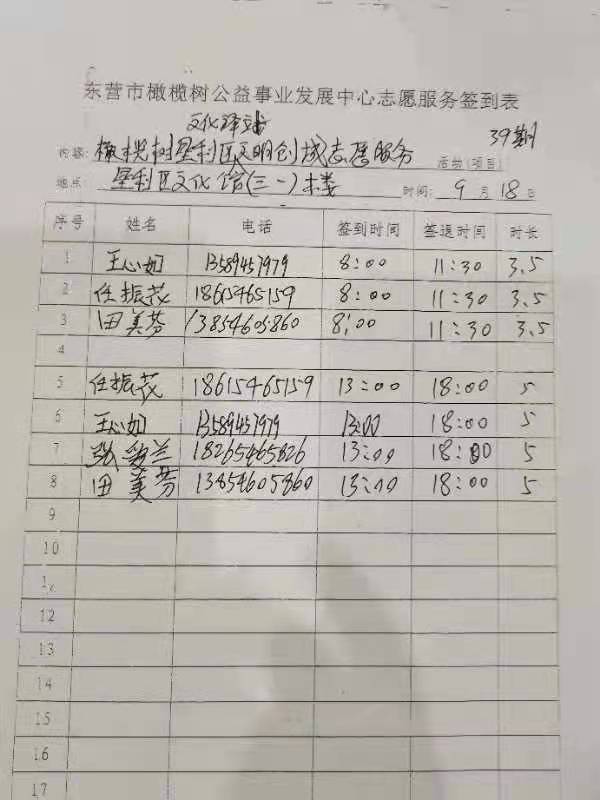 东营市橄榄树公益事业发展中心志愿服务签到表
文化驿站 39期
内容: 橄榄树垦利区文明创城志愿服务 活动(项目)
地点: 垦利区文化馆(三一)楼 时间: 9月18日
序号 姓名 电话 签到时间 签退时间 时长
1 王心如 13589457979 8:00 11:30 3.5
2 任振花 18615465159 8:00 11:30 3.5
3 田美芬 13854605860 8:00 11:30 3.5
4
5 任振花 18615465159 13:00 18:00 5
6 王心如 13589457979 13:00 18:00 5
7 张 兰 18265465826 13:00 18:00 5
8 田美芬 13854605860 13:00 18:00 5
9
10
12
13
14
15
16
17